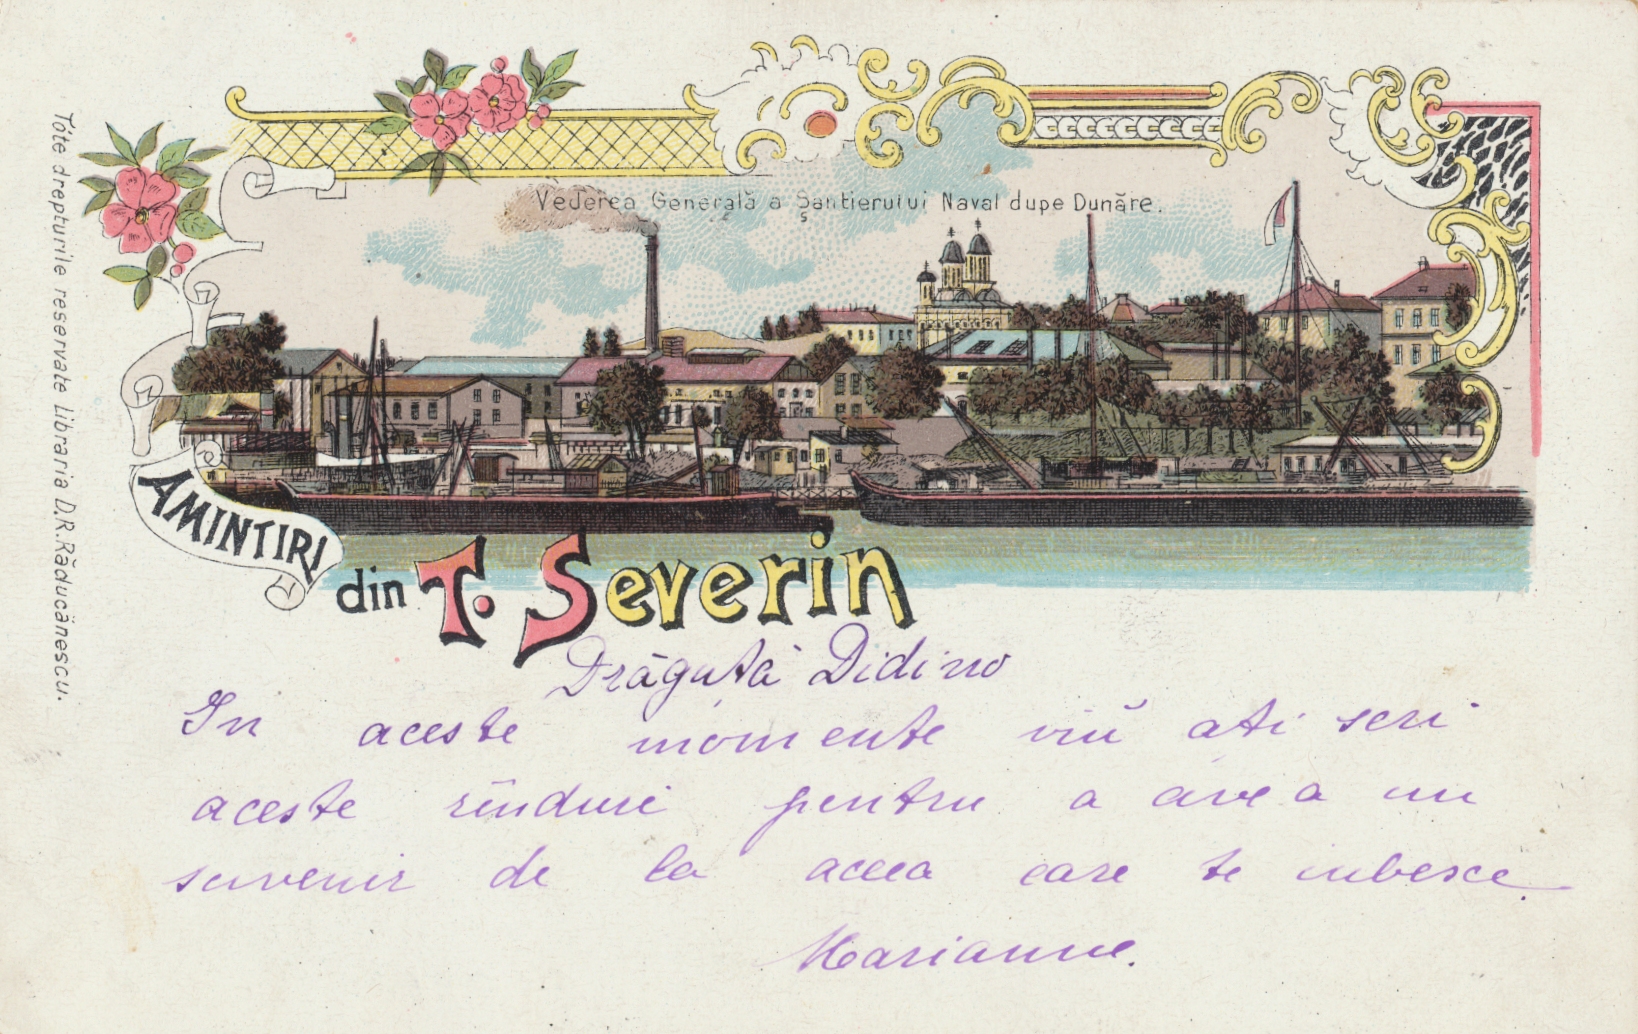 Vederea Generală a Șantierului Naval dupe Dunăre.
Tóte drepturile reservate Libraria D.R.Răducănescu.
AMINTIRI
din T. Severin
Drăguță Didino
In aceste momente viŭ ați scri
aceste rînduri pentru a avea un
suvenir de la aceea care te iubesce.
Marianne.